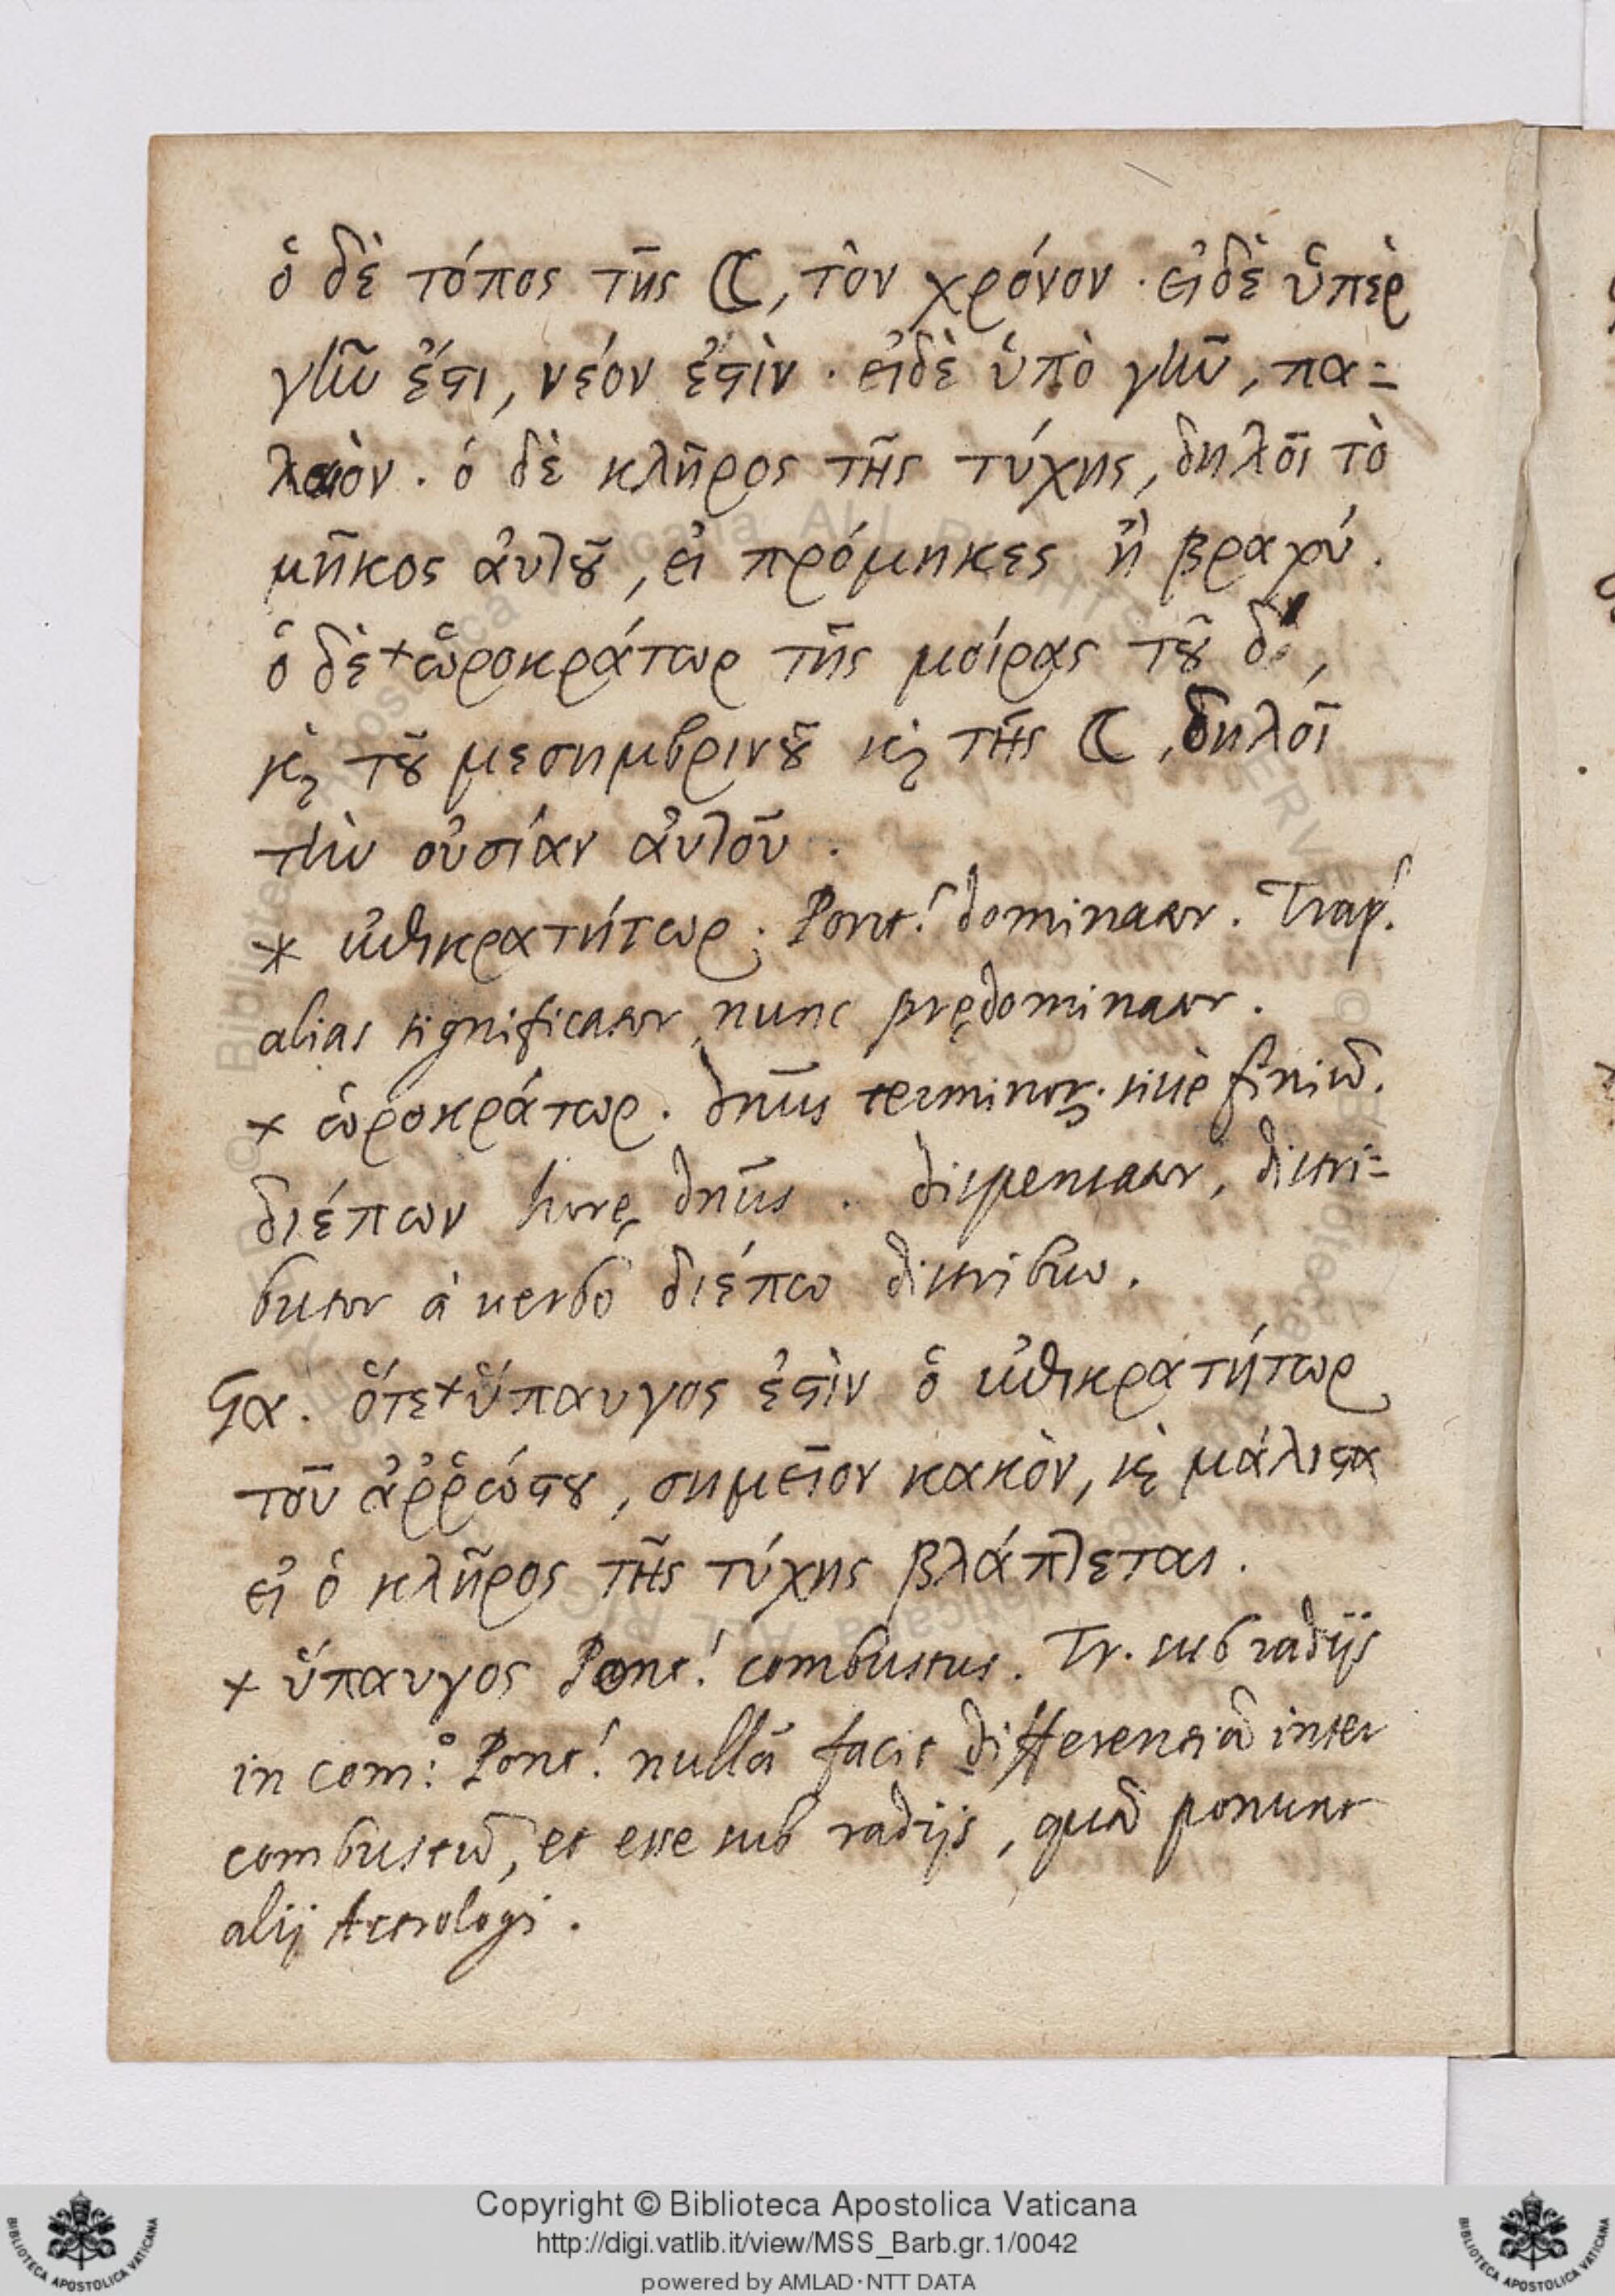 ὁ δὲ τόπος τῆς ☾, τὸν χρόνον · εἰδὲ ὑπὲρ
γῆν ἔστι, νέον ἐστὶν · εἰδὲ ὑπὸ γῆν, πα=
λαιὸν . ὁ δὲ κλῆρος τῆς τύχης, δηλοῖ τὸ
μῆκος ἀυτοῦ, εἰ πρόμηκες ἢ βραχύ .
ὁ δὲ + ὡροκράτωρ τῆς μοίρας τοῦ
κὶ τοῦ μεσημβρινοῦ κὶ τῆς ☾, δηλοῖ
τὴν οὐσίαν ἀυτοῦ .
* κρατήτωρ : Pont! dominator . Trap!
alias significator, nunc prędominator .
+ ὡροκράτωρ . dñus terminoꝝ. siuè finiũ .
διέπων horę dñus . dispensator, distri=
butor à uerbo διέπω distribuo .
ϟα . ὅτε + ὕπαυγος ἐστὶν ὁ
τοῦ ἀῤῥώστου, σημεῖον κακὸν, κὶ μάλιστα
εἰ ὁ κλῆρος τῆς τύχης βλάπτεται .
+ ὕπαυγος Pont! combustus . Tr. sub radijs
in com: Pont! nullã facit differentiã inter
combustũ, et esse sub radijs, quã ponunt
alij Astrologi .
Copyright © Biblioteca Apostolica Vaticana
http://digi.vatlib.it/view/MSS_Barb.gr.1/0042
powered by AMLAD·NTT DATA
BIBLIOTECA APOSTOLICA VATICANA
BIBLIOTECA APOSTOLICA VATICANA